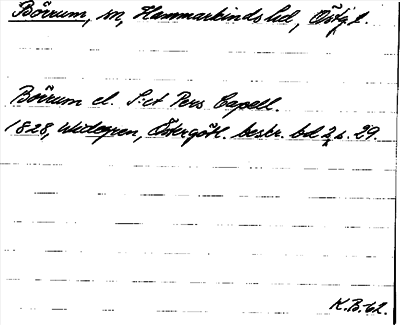 Börrum, sn, Hammarkinds hd, Östg.l.
Börrum el. S:ct Pers Capell.
1828, Widegren, Östergötl. beskr. bd 2, s. 29.
K.B-62.